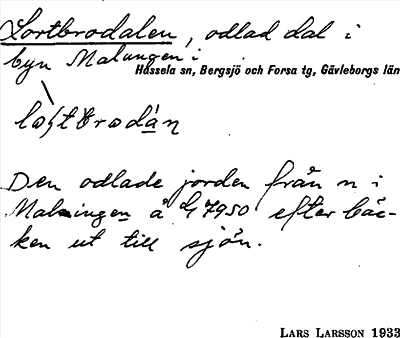 Lortbrodalen, odlad dal i
byn Malungen i
Hassela sn, Bergsjö och Forsa tg, Gävleborgs län
Den odlade jorden från n i
Malningen å 7950 efter bäc-
ken ut till sjön.
LARS LARSSON 1933